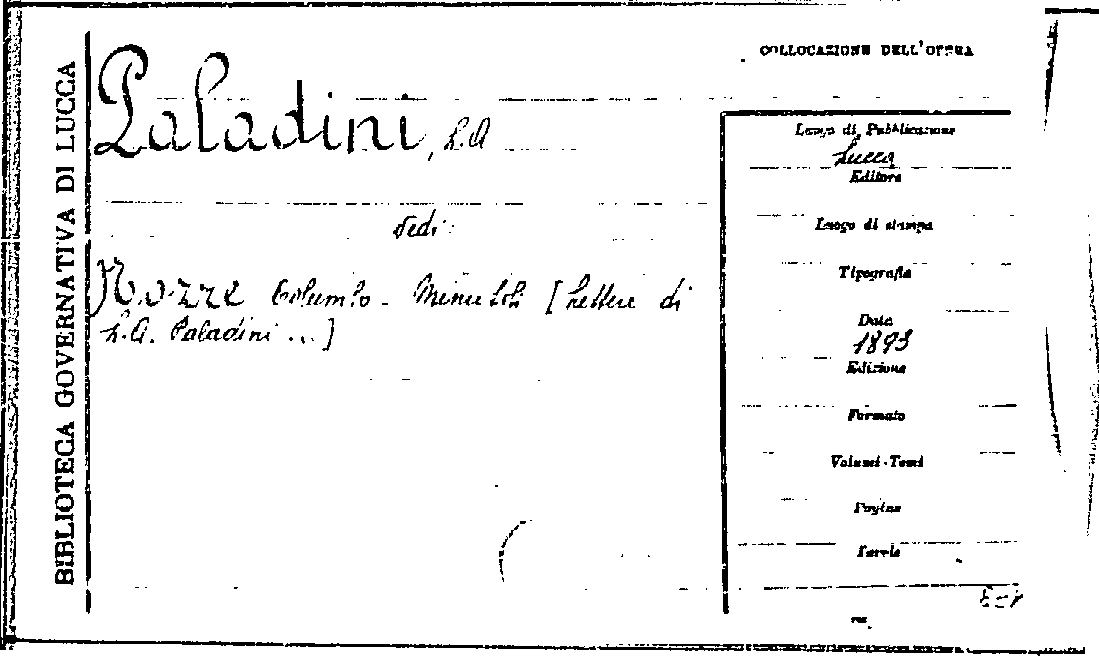 BIBLIOTECA GOVERNATIVA DI LUCCA
COLLOCAZIONE DELL'OPERA
Paladini, L.A
vedi:
Nozze Columbo - Minutoli [Lettere di
L.A. Paladini ...]
Luogo di Pubblicazione
Lucca
Editore
Luogo di stampa
Tipografia
Data
1893
Edizione
Formato
Volumi-Tomi
Pagine
Serie